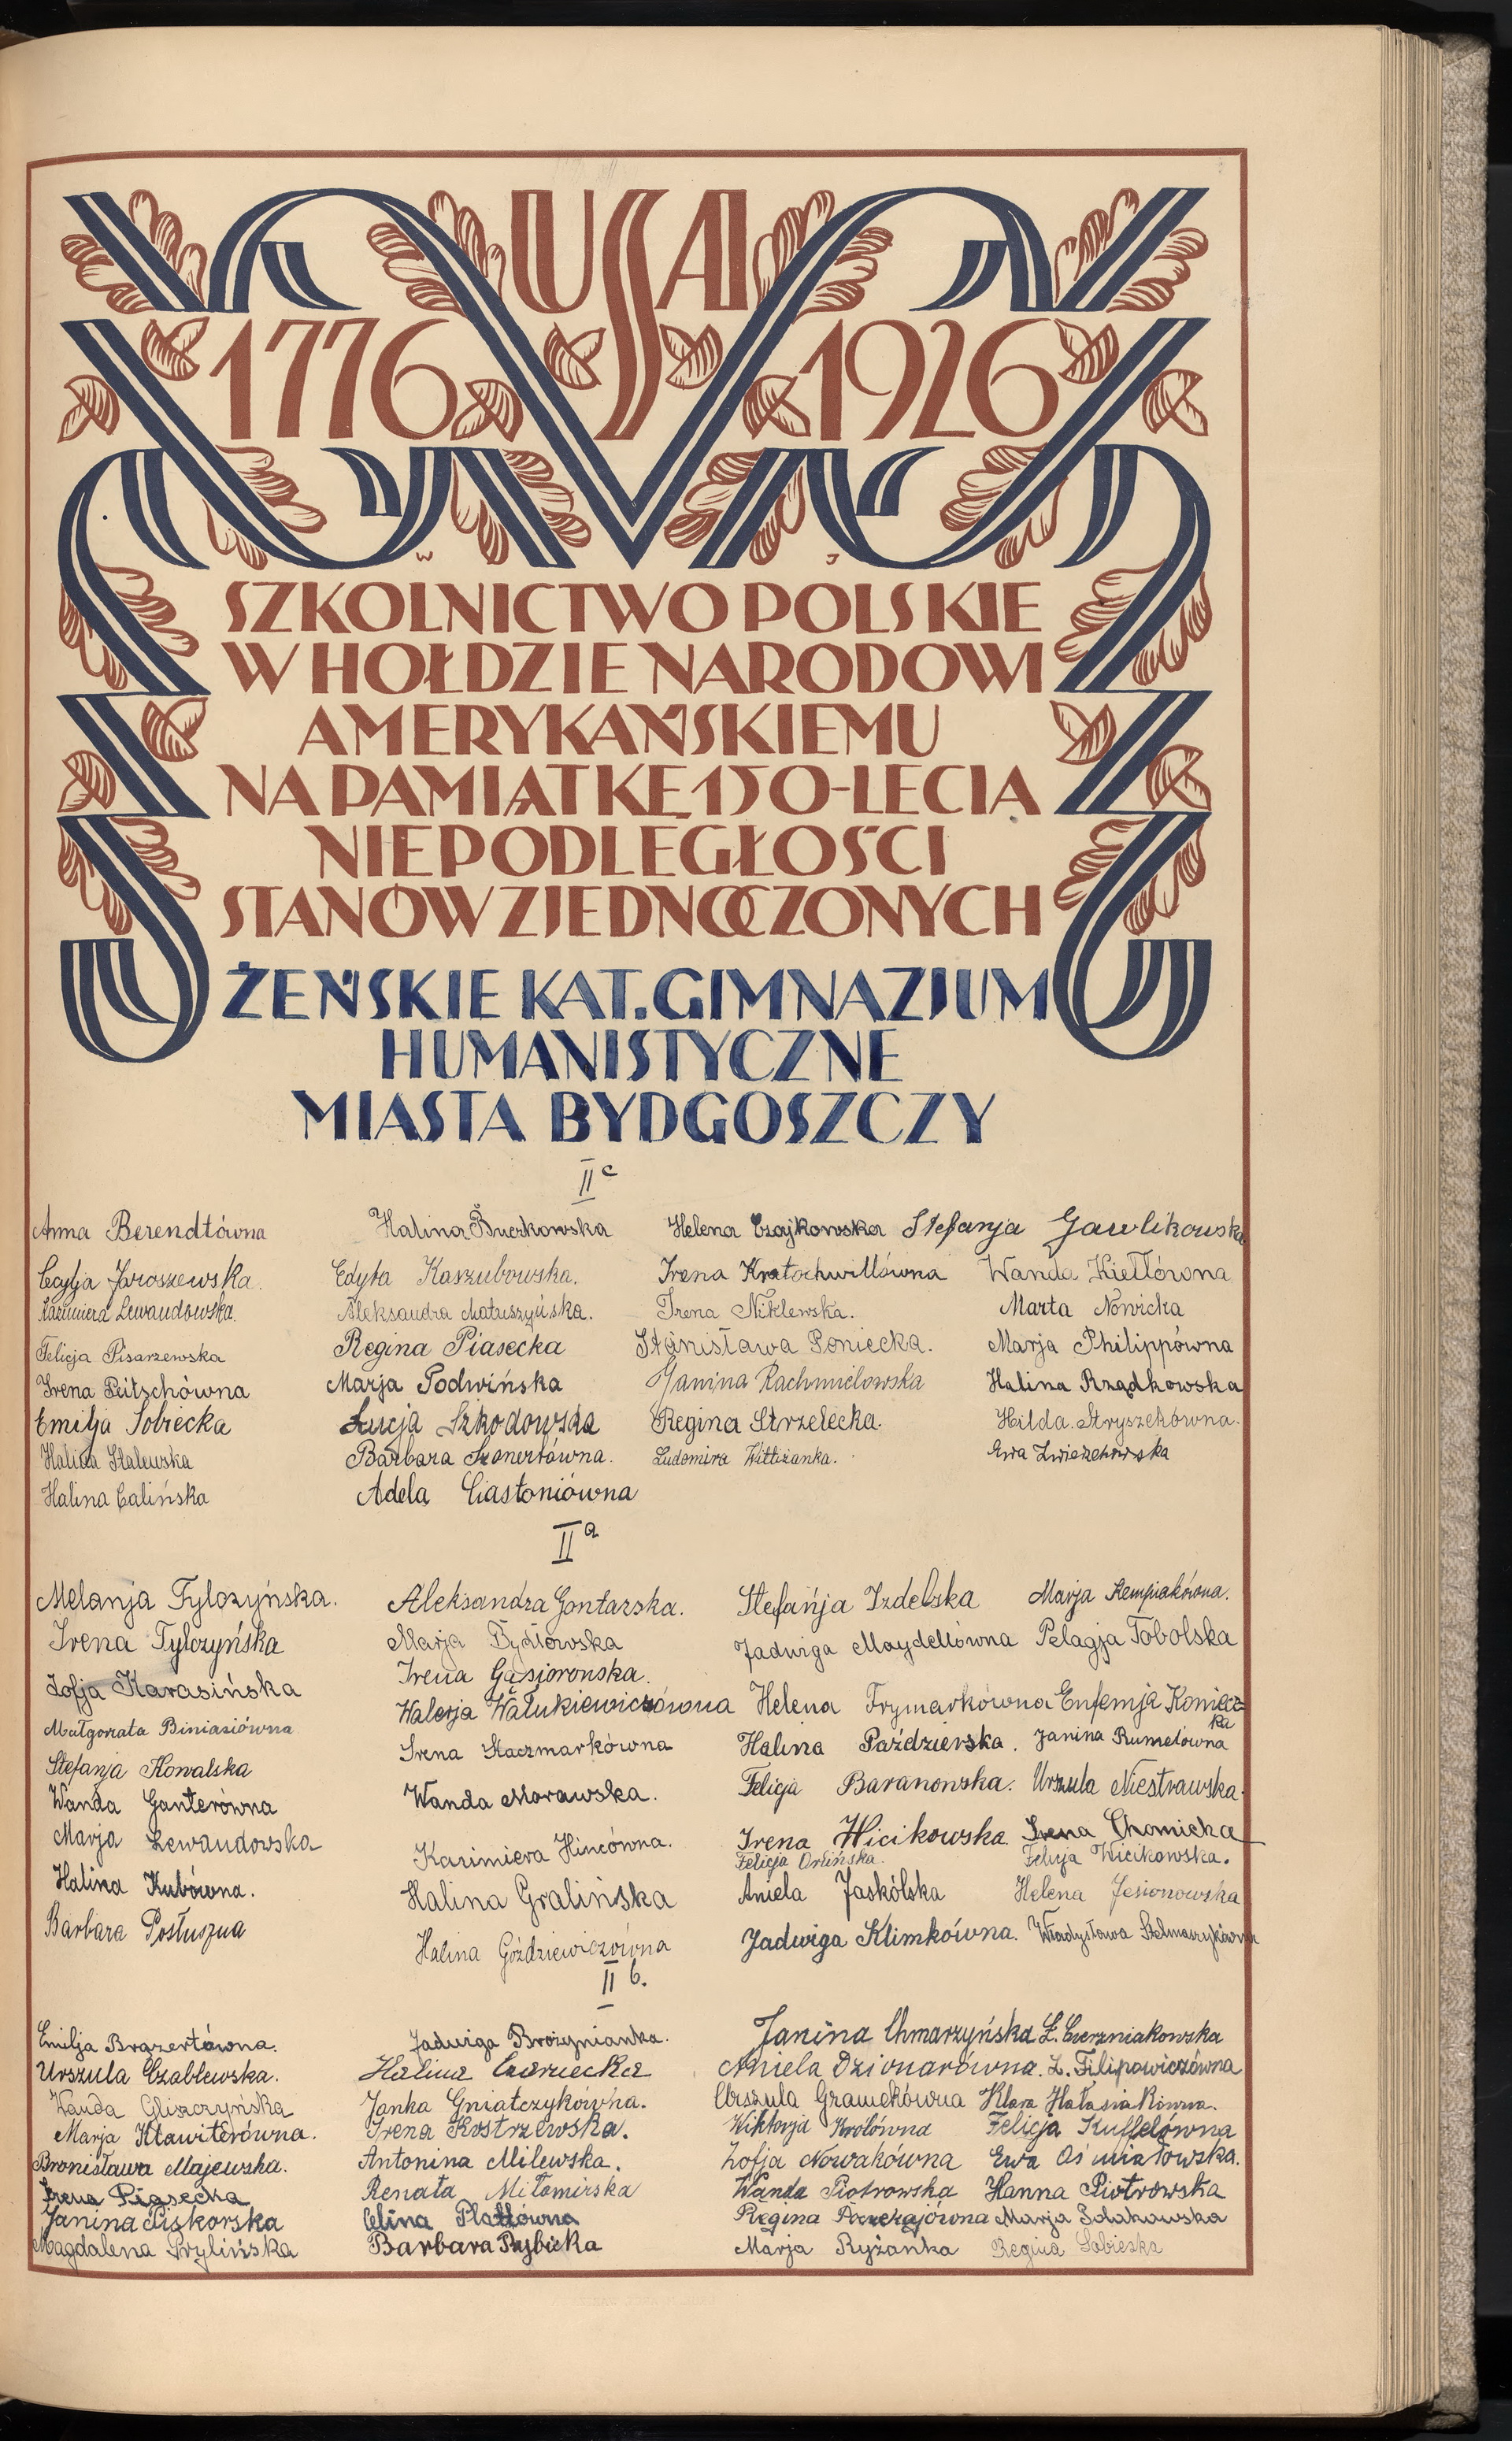 USA
1776 1926
W J
SZKOLNICTWO POLSKIE
W HOŁDZIE NARODOWI
AMERYKAŃSKIEMU
NA PAMIĄTKĘ 150-LECIA
NIEPODLEGŁOŚCI
STANÓW ZJEDNOCZONYCH
ŻEŃSKIE KAT. GIMNAZJUM
HUMANISTYCZNE
MIASTA BYDGOSZCZY
II c
Anna Berendtówna Halina Buczkowska Helena Czajkowska Stefanja Gawlikowska
Cecylja Jaroszewska. Edyta Kaszubowska. Irena Kratochwillówna Wanda Kiełłówna
Kazimiera Lewandowska. Aleksandra Matuszyńska. Irena Niklewska. Marta Nowicka
Felicja Pisarzewska Regina Piasecka Stanisława Poniecka. Marja Philippówna
Irena Peitschówna Marja Podwińska Janina Rachmielowska Halina Rządkowska
Emilja Sobiecka Łucja Szkodowska Regina Strzelecka. Hilda Stryszekówna.
Halina Stalewska Barbara Szonertówna. Ludomira Wittiżanka. Ewa
Halina Calińska Adela Ciastoniówna
II a
Melanja Tylczyńska. Aleksandra Gontarska. Stefańja Izdebska Marja Rempiakówna.
Irena Tylczyńska Marja Bydłowska Jadwiga Maydellówna Pelagja Tobolska
Zofja Karasińska Irena Gąsiorowska.
Walerja Wałukiewiczówna Helena Frymarkówna Eufemja Koniecz-
ka
Małgorzata Biniasiówna Irena Kaczmarkówna Halina Paździerska. Janina Rumelówna
Stefanja Kowalska
Wanda Ganterówna Wanda Morawska. Felicja Baranowska. Urszula Niestrawska.
Marja Lewandowska Kazimiera Hincówna. Irena Wicikowska Irena Chomicka
Felicja Orlińska. Felicja Wicikowska.
Halina Kubówna. Halina Gralińska Aniela Jaskólska Helena Jesionowska
Barbara Posłuszna Halina Goździewiczówna Jadwiga Klimkówna. Władysława Stelmaszykówna
II b.
Emilja Brązertówna. Jadwiga Brożynianka. Janina Chmarzyńska Ł. Czerniakowska
Urszula Czablewska. Halina Czarnecka Aniela Dzionarówna. L. Filipowiczówna
Wanda Gliszczyńska Janka Gniatczykówna. Urszula Gramckówna Klara Hałasiakówna.
Marja Klawiterówna. Irena Kostrzewska. Wiktorja Królówna Felicja Kuffelówna
Bronisława Majewska. Antonina Milewska. Zofja Nowakówna Ewa Ośmiałowska.
Irena Piasecka Renata Miłomirska Wanda Piotrowska Hanna Piotrowska
Janina Piskorska Celina Plattówna Regina Marja Sołakowska
Magdalena Prylińska Barbara Rybicka Marja Ryżanka Regina Sobieska